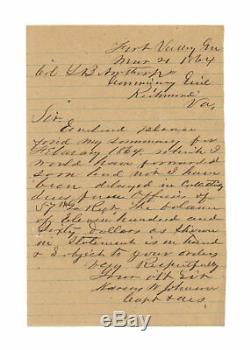 Fort Valley Ga
Mar 21 1864
Col L.B. Northrop
Commissary Genl
Richmond
Va.
Sir
Enclosed please
find my summary for
February 1864 which I
would have forwarded
soon had not I have
been delayed in collecting
dues from Officers of
57 Ga Regt. The balance
of Eleven hundred and
Sixty dollars as shown
in statement is on hand
& subject to your orders
Very Respectfully
Your obt Svt
W. Johnson
Capt & acs.